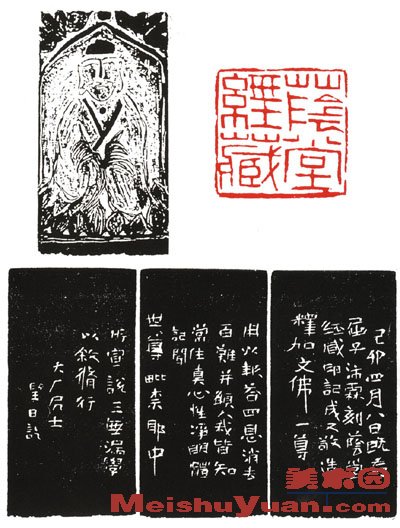 蔭堂
經藏
己卯四月八日既為
屈子沛霖刻蔭堂
經藏印記成又敬造
釋加文佛一尊
用以報答四恩消去
百難并願人我皆知
常住真心性淨明體
記聞
世尊毗奈耶中
所宣說三無漏學
以敘脩行
大厂居士
日記
美术园
MeishuYuan.com